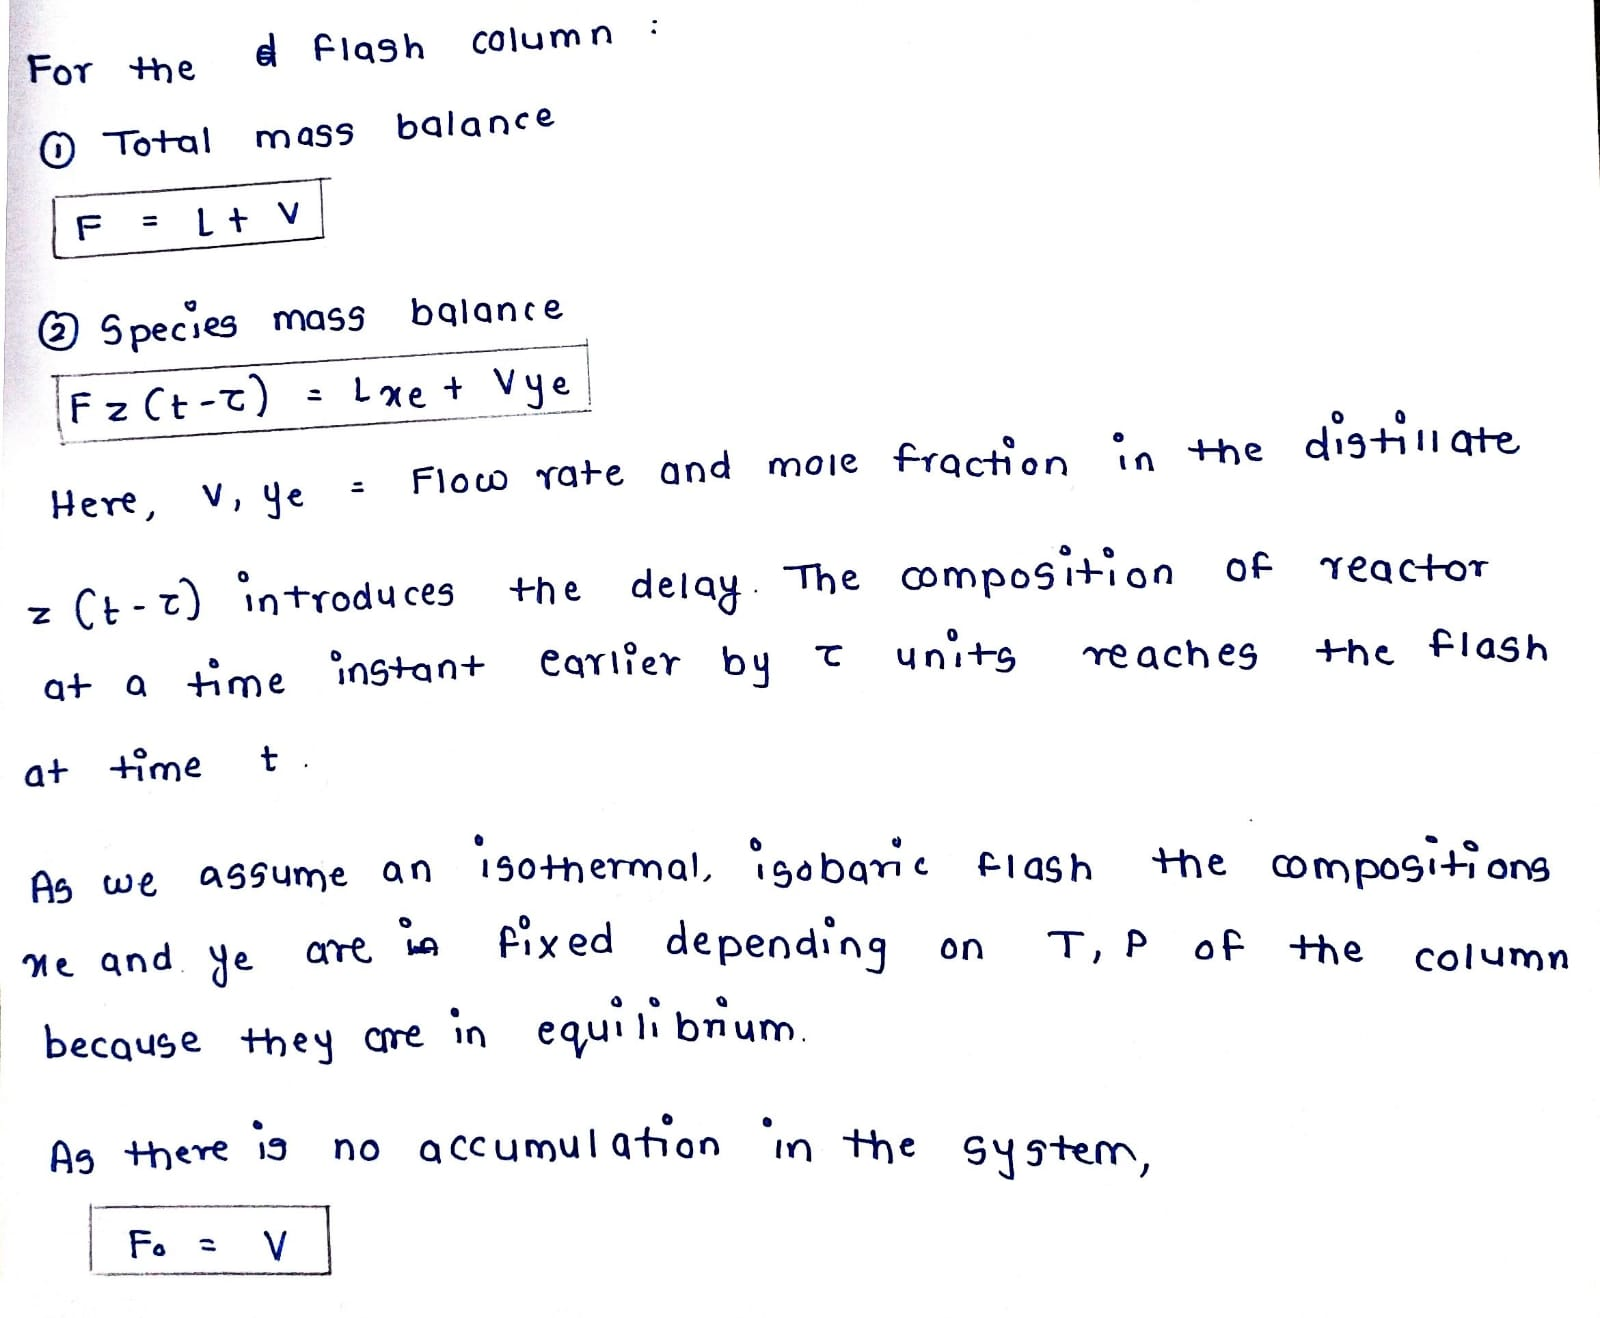 For the flash column :
① Total mass balance
F = L + V
② Species mass balance
F z (t - τ) = L xe + V ye
Here, V, ye = Flow rate and mole fraction in the distillate
z (t - τ) introduces the delay. The composition of reactor
at a time instant earlier by τ units reaches the flash
at time t .
As we assume an isothermal, isobaric flash the compositions
xe and ye are fixed depending on T, P of the column
because they are in equilibrium.
As there is no accumulation in the system,
Fo = V